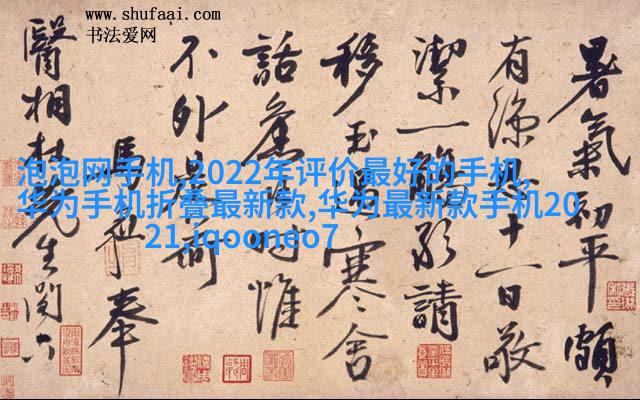 www.shufaai.com
书法爱网
泡泡网手机,2022年评价最好的手机,
华为手机折叠最新款,华为最新款手机20
21,iqooneo7
暑氣初平頗
有涼思十一日敬
潔一觴請
移玉過寒舍
話舊惟
不外是荷
馬奉
醫相杜先生閣下